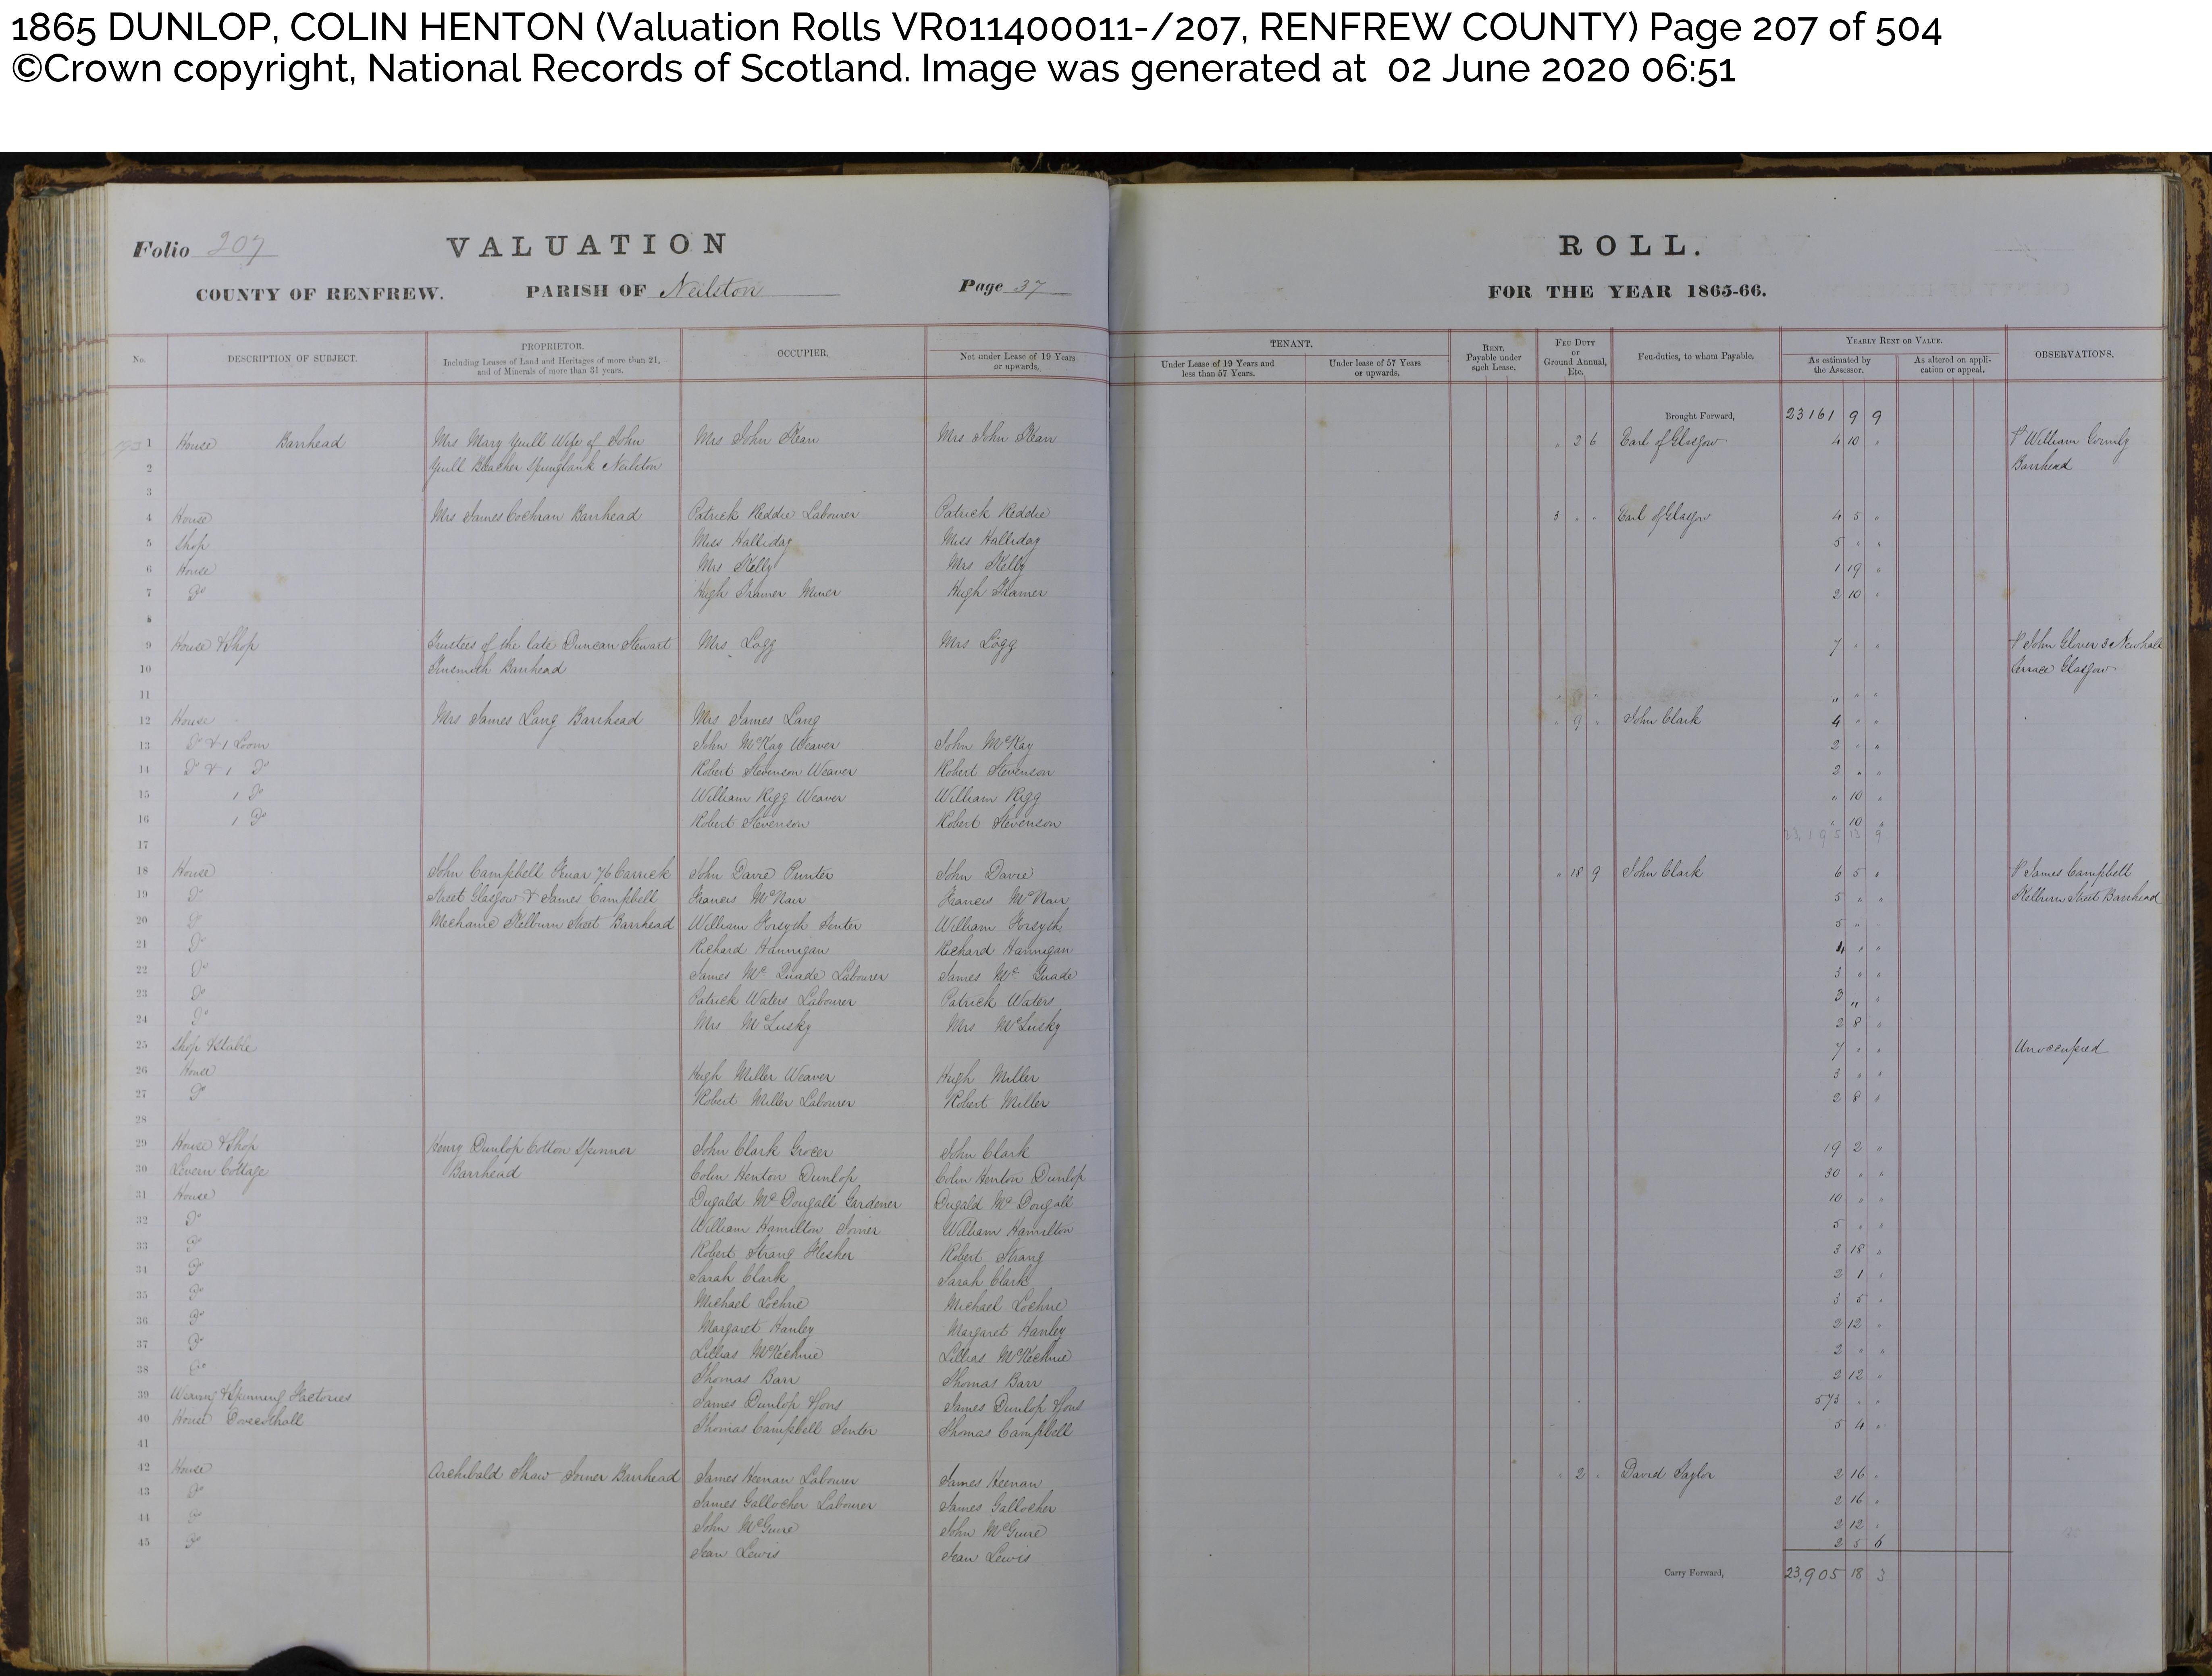 1865 DUNLOP, COLIN HENTON (Valuation Rolls VR011400011-/207, RENFREW COUNTY) Page 207 of 504
©Crown copyright, National Records of Scotland. Image was generated at 02 June 2020 06:51
Folio 207 VALUATION ROLL.
COUNTY OF RENFREW. PARISH OF Neilston Page 37 FOR THE YEAR 1865-66.
No. DESCRIPTION OF SUBJECT. PROPRIETOR. Including Leases of Land and Heritages of more than 21, and of Minerals of more than 31 years. OCCUPIER. TENANT. Not under Lease of 19 Years or upwards. Under Lease of 19 Years and less than 57 Years. Under lease of 57 Years or upwards. Rent, Payable under such Lease. Feu Duty or Ground Annual, Etc. Feu-duties, to whom Payable. Yearly Rent or Value. As estimated by the Assessor. As altered on application or appeal. OBSERVATIONS.
Brought Forward, 23161 9 9
1 House Barrhead Mrs Mary Yuill Wife of John Mrs John Kean Mrs John Kean " 2 6 Earl of Glasgow 4 10 " William
2 Yuill Bleacher Springbank Neilston Barrhead
3
4 House Mrs James Cochran Barrhead Patrick Reddie Labourer Patrick Reddie 3 " " Earl of Glasgow 4 5 "
5 Shop Miss Halliday Miss Halliday 5 " "
6 House Mrs Kelly Mrs Kelly 1 19 "
7 Do Hugh Miner Hugh 2 10 "
8
9 House & Shop Trustees of the late Duncan Stewart Mrs Logg Mrs Logg 7 " " John Glover 3 Newhall
10 Tinsmith Barrhead Terrace Glasgow
11 " " "
12 House Mrs James Lang Barrhead Mrs James Lang " 9 " John Clark 4 " "
13 Do & 1 Loom John McKay Weaver John McKay 2 " "
14 Do & 1 Do Robert Stevenson Weaver Robert Stevenson 2 " "
15 1 Do William Rigg Weaver William Rigg " 10 "
16 1 Do Robert Stevenson Robert Stevenson " 10 "
23195 13 9
17
18 House John Campbell Feuar 76 Carrick John Davie Printer John Davie " 18 9 John Clark 6 5 " James Campbell
19 Do Street Glasgow & James Campbell Francis McNair Francis McNair 5 " " Kelburn Street Barrhead
20 Do Mechanic Kelburn Street Barrhead William Forsyth Tenter William Forsyth 5 " "
21 Do Richard Hannigan Richard Hannigan 4 " "
22 Do James Mc Quade Labourer James Mc Quade 3 " "
23 Do Patrick Waters Labourer Patrick Waters 3 " "
24 Do Mrs McLusky Mrs McLusky 2 8 "
25 Shop & Stable 7 " " Unoccupied
26 House Hugh Miller Weaver Hugh Miller 3 " "
27 Do Robert Miller Labourer Robert Miller 2 8 "
28
29 House & Shop Henry Dunlop Cotton Spinner John Clark Grocer John Clark 19 2 "
30 Levern Cottage Barrhead Colin Henton Dunlop Colin Henton Dunlop 30 " "
31 House Dugald Mc Dougall Gardener Dugald Mc Dougall 10 " "
32 Do William Hamilton Joiner William Hamilton 5 " "
33 Do Robert Strang Flesher Robert Strang 3 18 "
34 Do Sarah Clark Sarah Clark 2 1 "
35 Do Michael Lochrie Michael Lochrie 3 5 "
36 Do Margaret Hanley Margaret Hanley 2 12 "
37 Do Lillias McKechnie Lillias McKechnie 2 " "
38 Do Thomas Barr Thomas Barr 2 12 "
39 Weaving & Spinning Factories James Dunlop & Sons James Dunlop & Sons 573 " "
40 House Dovecothall Thomas Campbell Tenter Thomas Campbell 5 4 "
41
42 House Archibald Shaw Joiner Barrhead James Keenan Labourer James Keenan " 2 " David Taylor 2 16 "
43 Do James Gallocher Labourer James Gallocher 2 16 "
44 Do John McGuire John McGuire 2 12 "
45 Do Jean Lewis Jean Lewis 2 5 6
Carry Forward, 23,905 18 3